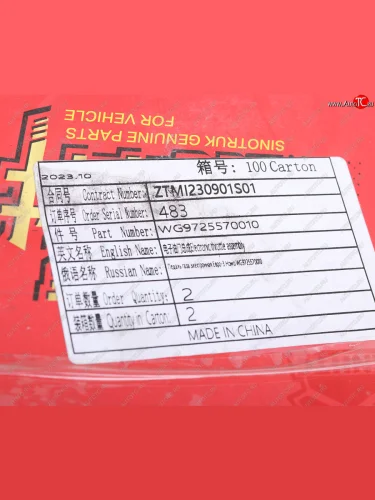 SINOTRUK GENUINE PARTS
FOR VEHICLE
2023.10
箱号: 100 Carton
合同号 Contract Number: ZTMI230901S01
订单序号 Order Serial Number: 483
件 号 Part Number: WG9725570010
英文名称 English Name: Electronic throttle assembly
俄语名称 Russian Name: WG9725570010
订单数量 Order Quantity: 2
装箱数量 Quantity in Carton: 2
MADE IN CHINA